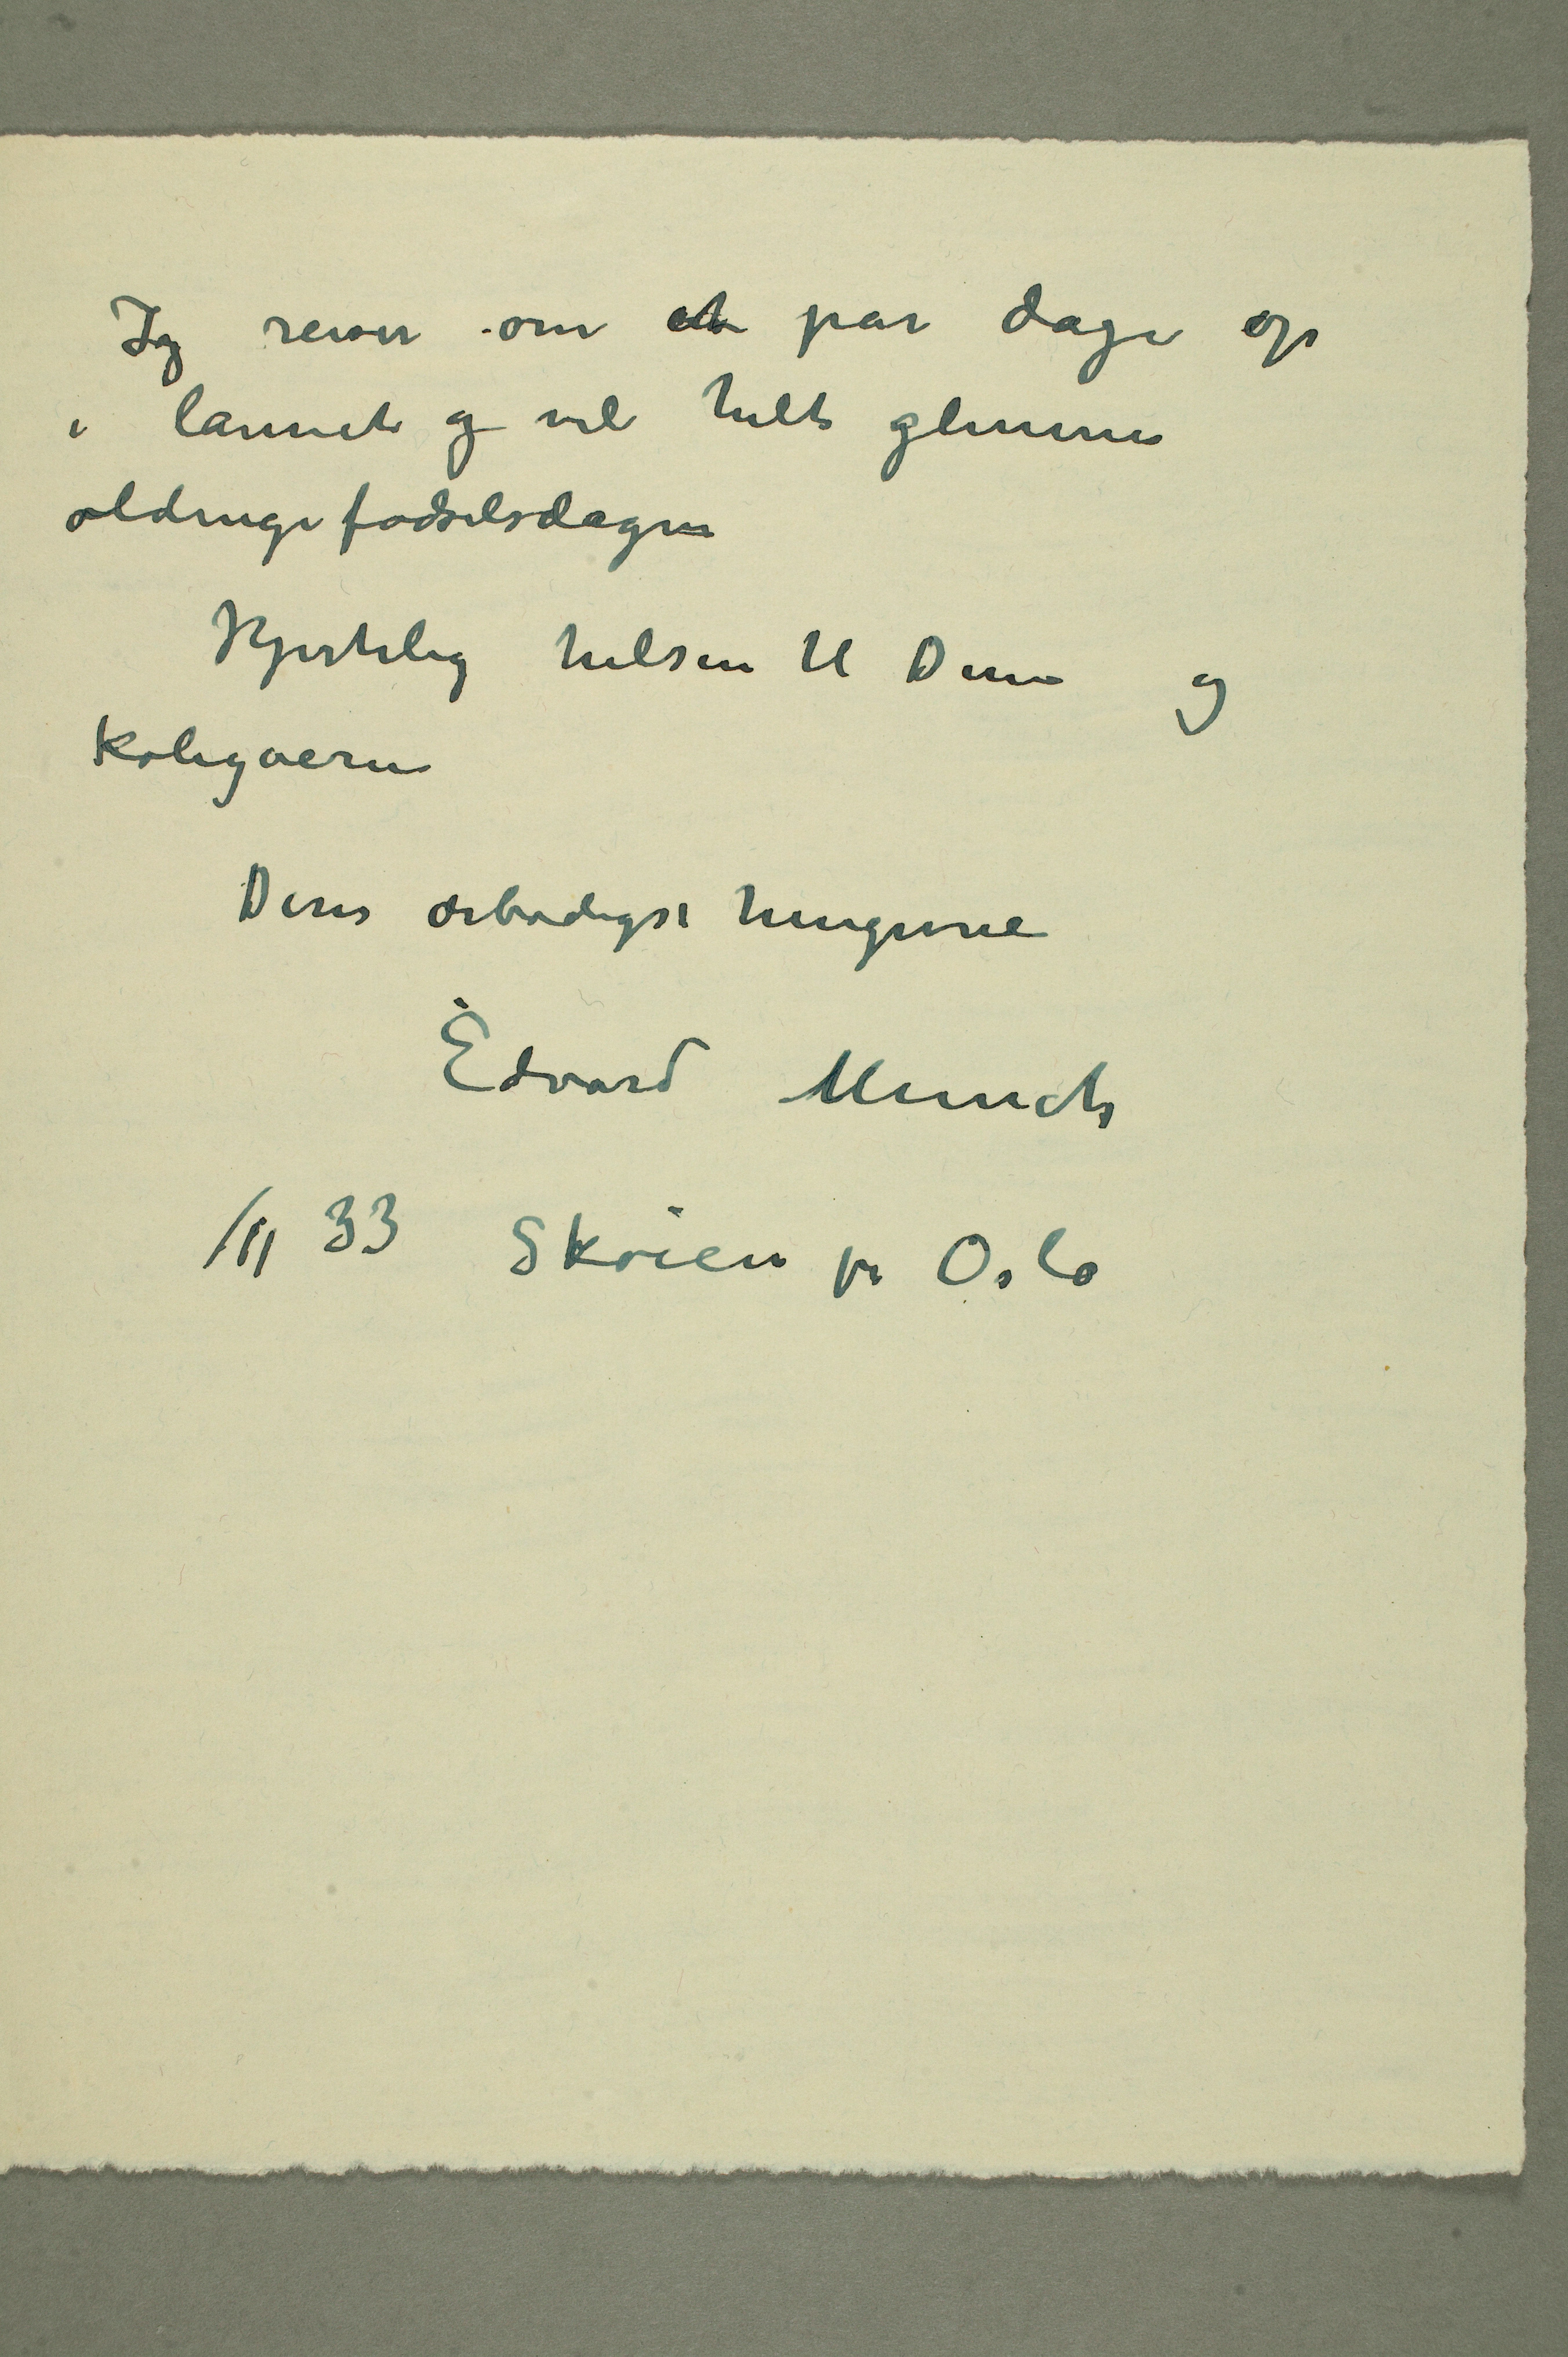 Jeg reiser om et par dage op
i lannet og vil helt glemme
oldingefødselsdagen
Hjertelig hilsen til Dem og
kolegaerne
Deres ærbødigst hengivne
Edvard Munch
/11 33 Skøien pr Oslo